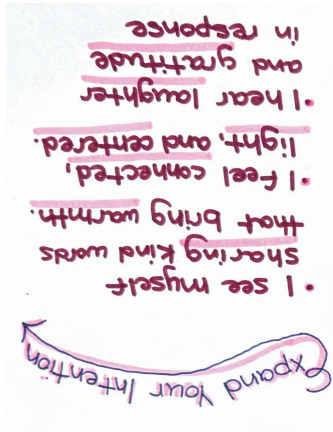 Expand Your Intention
• I see myself
sharing kind words
that bring warmth.
• I feel connected,
light, and centered.
• I hear laughter
and gratitude
in response